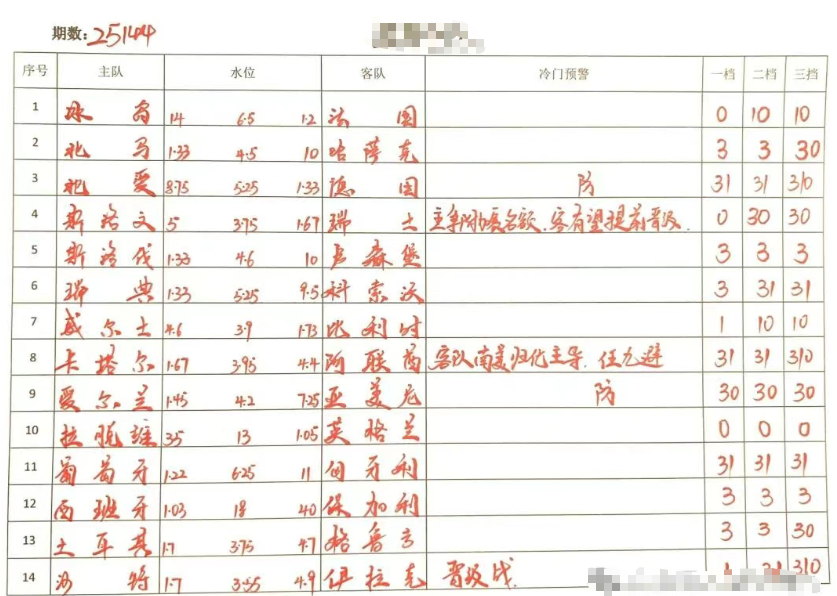 期数:25144
序号 主队 水位 客队 冷门预警 一档 二档 三挡
1 冰岛 14 6.5 1.2 法国 0 10 10
2 北马 1.33 4.5 10 哈萨克 3 3 30
3 北爱 8.75 5.25 1.33 德国 防 31 31 310
4 斯洛文 5 3.75 1.67 瑞士 主争附加赛名额、客有望提前晋级. 0 30 30
5 斯洛伐 1.33 4.6 10 卢森堡 3 3 3
6 瑞典 1.33 5.25 9.5 科索沃 3 31 31
7 威尔士 4.6 3.9 1.73 比利时 1 10 10
8 卡塔尔 1.67 3.95 4.4 阿联酋 客队南美归化主导、任九避 31 31 310
9 爱尔兰 1.45 4.2 7.25 亚美尼 防 30 30 30
10 拉脱维 35 13 1.05 英格兰 0 0 0
11 葡萄牙 1.22 6.25 11 匈牙利 31 31 31
12 西班牙 1.03 18 40 保加利 3 3 3
13 土耳其 1.7 3.75 4.7 格鲁吉 3 3 30
14 沙特 1.7 3.55 4.9 伊拉克 晋级战. 310